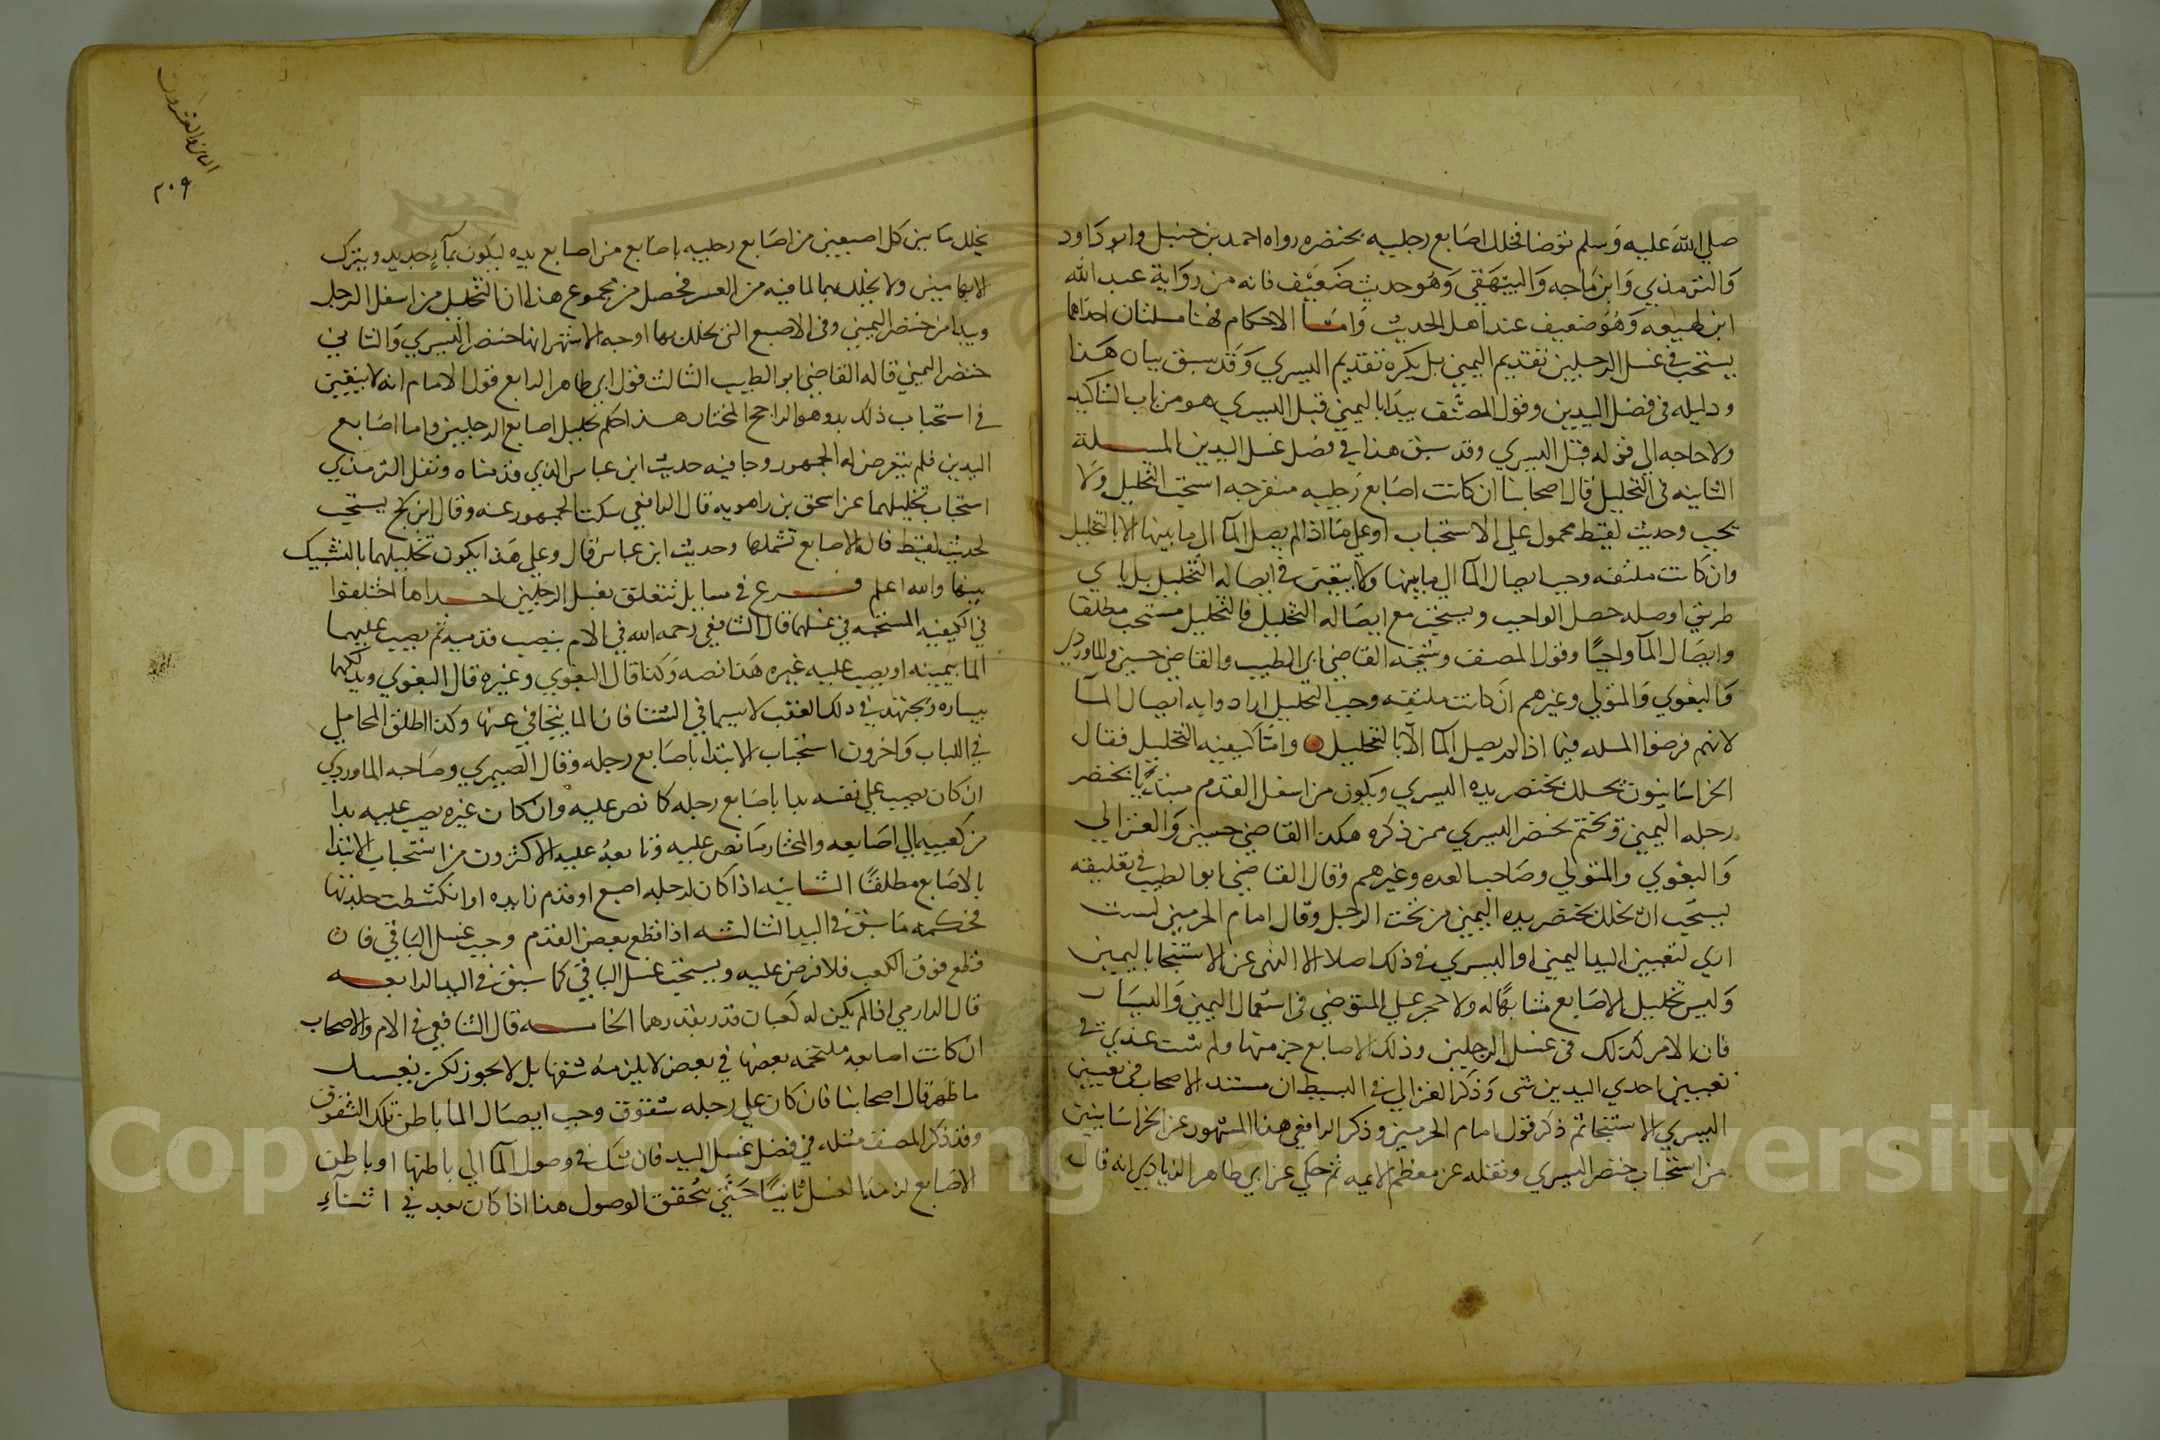 صلي الله عليه وسلم توضا فخلل اصابع رجليه بخنصره رواه احمد بن حنبل وابو داود
والترمذي وابن ماجه والبيهقي وهو حديث ضعيف فانه من رواية عبد الله
ابن لهيعه وهو ضعيف عند اهل الحديث واما الاحكام فهنا مسلتان احداهما
يستحب في غسل الرجلين تقديم اليمني بل يكره تقديم اليسري وقد سبق بيان هذا
ودليله في فصل اليدين وقول المصنف يبدا باليمني قبل اليسري هو من باب التاكيد
ولا حاجه الي قوله قبل اليسري وقد سبق هذا في فصل غسل اليدين المسلة
الثانيه في التخليل قال اصحابنا ان كانت اصابع رجليه منفرجه استحب التخليل ولا
يجب وحديث لقيط محمول علي الاستحباب او علي ما اذا لم يصل الما الي ما بينها الا بالتخليل
وان كانت ملتفه وجب ايصال الما الي ما بينها ولا يتعين في ايصاله التخليل بل باي
طريق اوصله حصل الواجب ويستحب مع ايصاله التخليل فالتخليل مستحب مطلقا
وايصال الما واجبا وقول المصنف وشيخه القاضي ابي الطيب والقاضي حسين والماوردي
والبغوي والمتولي وغيرهم ان كانت ملتفه وجب التخليل ارادوا به ايصال الما
لانهم فرضوا المسله فيما اذا لم يصل الما الا بالتخليل واما كيفيه التخليل فقال
الخراسانيون يخلل بخنصر يده اليسري ويكون من اسفل القدم مبتديا بخنصر
رجله اليمني ويختم بخنصر اليسري ممن ذكره هكذا القاضي حسين والغزالي
والبغوي والمتولي وصاحب العده وغيرهم وقال القاضي ابو الطيب في تعليقته
يستحب ان يخلل بخنصر يده اليمني من تحت الرجل وقال امام الحرمين لست
اري لتعيين اليد اليمني او اليسري في ذلك اصلا الا النهي عن الاستنجا باليمين
وليس تخليل الاصابع مشابها له ولا حجر علي المتوضي في استعمال اليمين واليسار
فان الامر كذلك في غسل الرجلين وذلك الاصابع جز منها ولم يثبت عندي في
تعيين احدي اليدين شي وذكر الغزالي في البسيط ان مستند الاصحاب في تعيين
اليسري الاستنجا ثم ذكر قول امام الحرمين وذكر الرافعي هذا المشهور عن الخراسانيين
من استحباب خنصر اليسري ونقله عن معظم الايمه ثم حكي عن ابي طاهر الزيادي انه قال
٢٠٩
يخلل ما بين كل اصبعين من اصابع رجليه باصابع من اصابع يده ليكون بماء جديد ويترك
الابهامين ولا يخلل بهما لما فيه من العسر فحصل من مجموع هذا ان التخليل من اسفل الرجل
ويبدا من خنصر اليمني وفي الاصبع التي يخلل بها اوجه الاشهر انها خنصر اليسري والثاني
خنصر اليمني قاله القاضي ابو الطيب الثالث قول ابي طاهر الرابع قول الامام انه لا يتعين
في استحباب ذلك يد وهو الراجح المختار هذا حكم تخليل اصابع الرجلين واما اصابع
اليدين فلم يتعرض له الجمهور وجا فيه حديث ابن عباس الذي قدمناه ونقل الترمذي
استحباب تخليلهما عن اسحق بن راهويه قال الرافعي سكت الجمهور عنه وقال ابن كج يستحب
لحديث لقيط فان الاصابع تشملها وحديث ابن عباس قال وعلي هذا يكون تخليلهما بالتشبيك
بينها والله اعلم فرع في مسايل تتعلق بغسل الرجلين احداها اختلفوا
في الكيفيه المستحبه في غسلهما قال الشافعي رحمه الله في الام ينصب قدميه ثم يصب عليهما
الما بيمينه او يصب عليه غيره هذا نصه وكذا قال البغوي وغيره قال البغوي ويدلكهما
بيساره ويجتهد في دلك العقب لا سيما في الشتا فان الما يتجافي عنها وكذا اطلق المحاملي
في اللباب واخرون استحباب الابتدا باصابع رجله وقال الصيمري وصاحبه الماوردي
ان كان يصب علي نفسه بدا باصابع رجله كما نص عليه وان كان غيره يصب عليه بدا
من كعبيه الي اصابعه والمختار ما نص عليه وتابعه عليه الاكثرون من استحباب الابتدا
بالاصابع مطلقا الثانيه اذا كان لرجله اصبع او قدم زايده او انكشطت جلدتها
فحكمه ما سبق في اليد الثالثه اذا قطع بعض القدم وجب غسل الباقي فان
قطع فوق الكعب فلا فرض عليه ويستحب غسل الباقي كما سبق في اليد الرابعه
قال الدارمي اذا لم يكن له كعبان قدر بقدرهما الخامسه قال الشافعي في الام والاصحاب
ان كانت اصابعه ملتحمه بعضها في بعض لا يلزمه شقها بل لا يجوز لكن يغسل
ما ظهر قال اصحابنا فان كان علي رجله شقوق وجب ايصال الما باطن تلك الشقوق
وقد ذكر المصنف مثله في فصل غسل اليد فان شك في وصول الما الي باطنها او باطن
الاصابع لزمه الغسل ثانيا حتي يتحقق الوصول هنا اذا كان بعد في اثناء